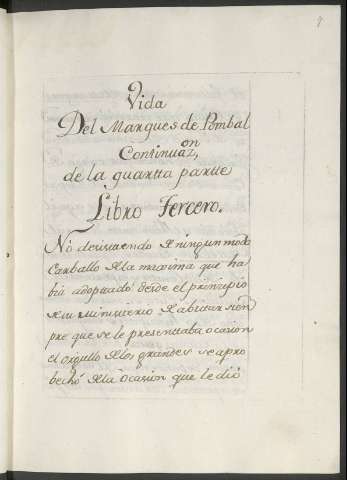 Vida
Del Marques de Pombal
Continuaⁿ,
de la quartta partte
Libro Tercero.
No desistiendo de ningun modo
Carballo de la maxima que ha
bia adoptado desde el prinzipio
de su ministerio de abatir siem
pre que se le presenttaba ocasion
el orgullo de los grandes se apro
bechó de la ocasion que le dió